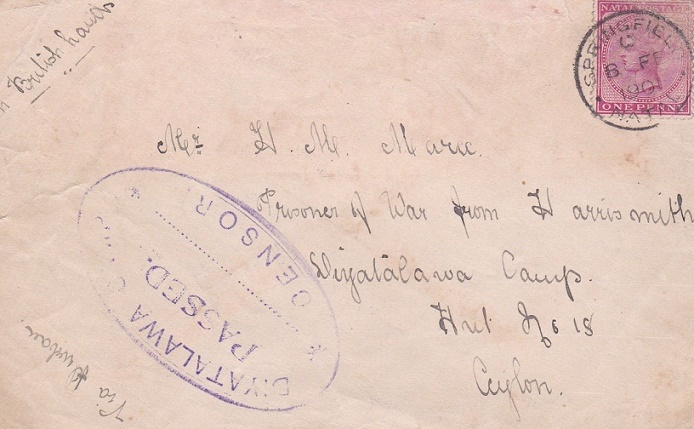 British
NATAL POSTAGE
SPRINGFIELD
C
8 FE
1901
NAT
ONE PENNY
Mr H. M. Marie.
Prisoner of War from Harrismith
Diyatalawa Camp.
Hut No 18
Ceylon.
DIYATALAWA
PASSED.
CENSOR
Via Durban